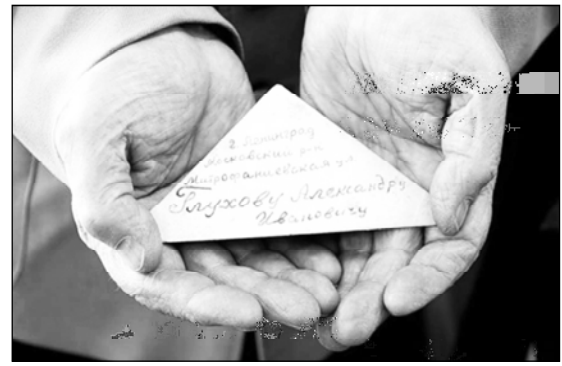 г. Ленинград
Московский р-н
Митрофаниевская ул
Глухову Александру
Ивановичу